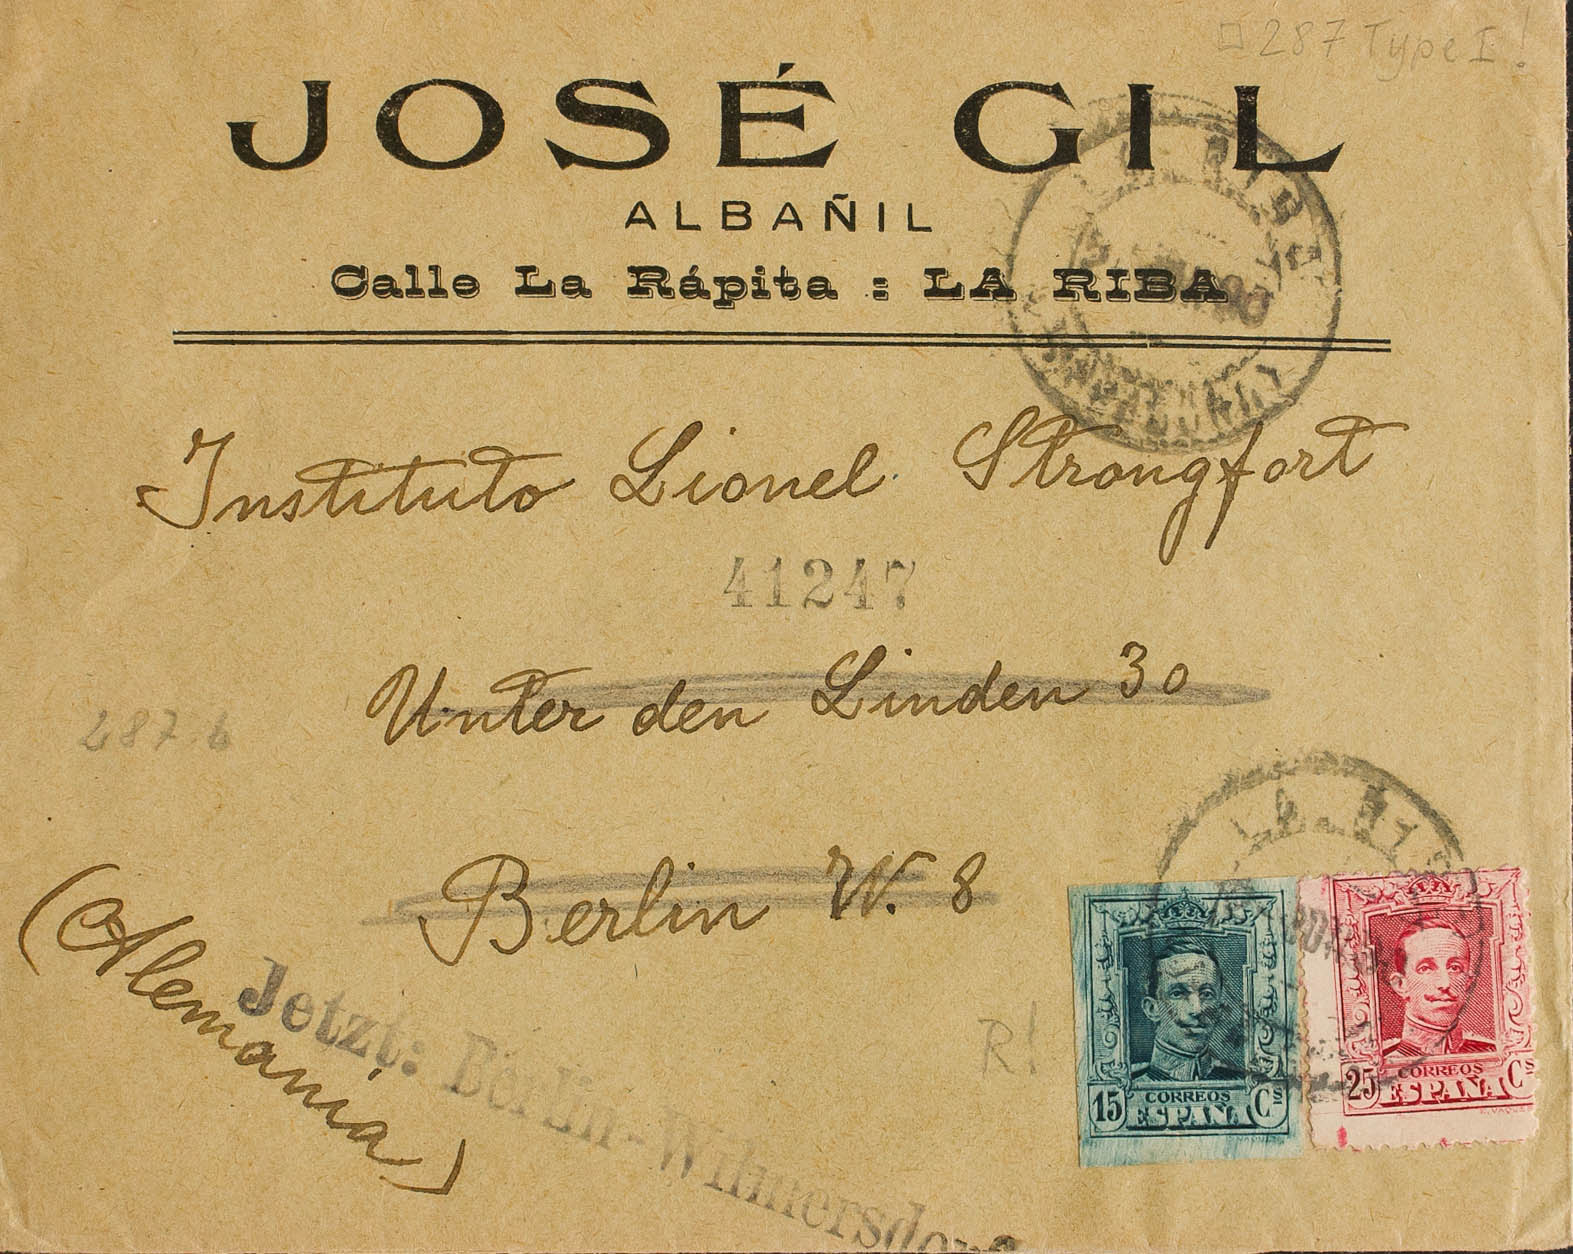 □ 287 Type I!
JOSÉ GIL
ALBAÑIL
Calle La Rápita : LA RIBA
Instituto Lionel Strongfort
41247
Unter den Linden 30
287.
Berlin W. 8
(Alemania)
Jetzt: Berlin-Wilmersdorf
R!
LA RIBA
LA RIB
15 CORREOS Cs
ESPAÑA
25 CORREOS Cs
ESPAÑA